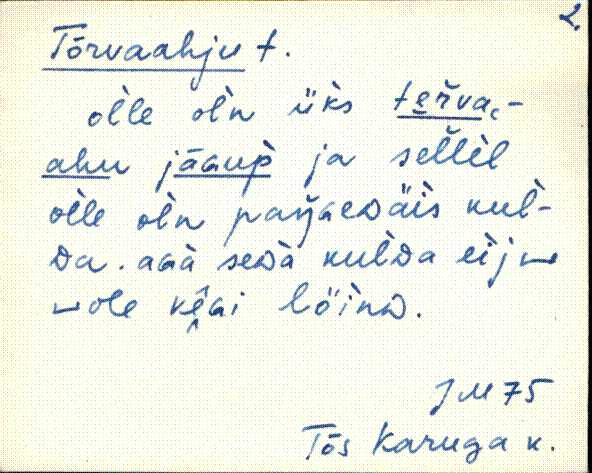 2.
Tõrvaahju t.
olle oĺn üks terva-
ahu jaaup ja sellel
olle oĺn paŋaewäis kul-
da. aga seda kulda eij
ole kêai löünd.
JM 75
Tõs Karuga k.